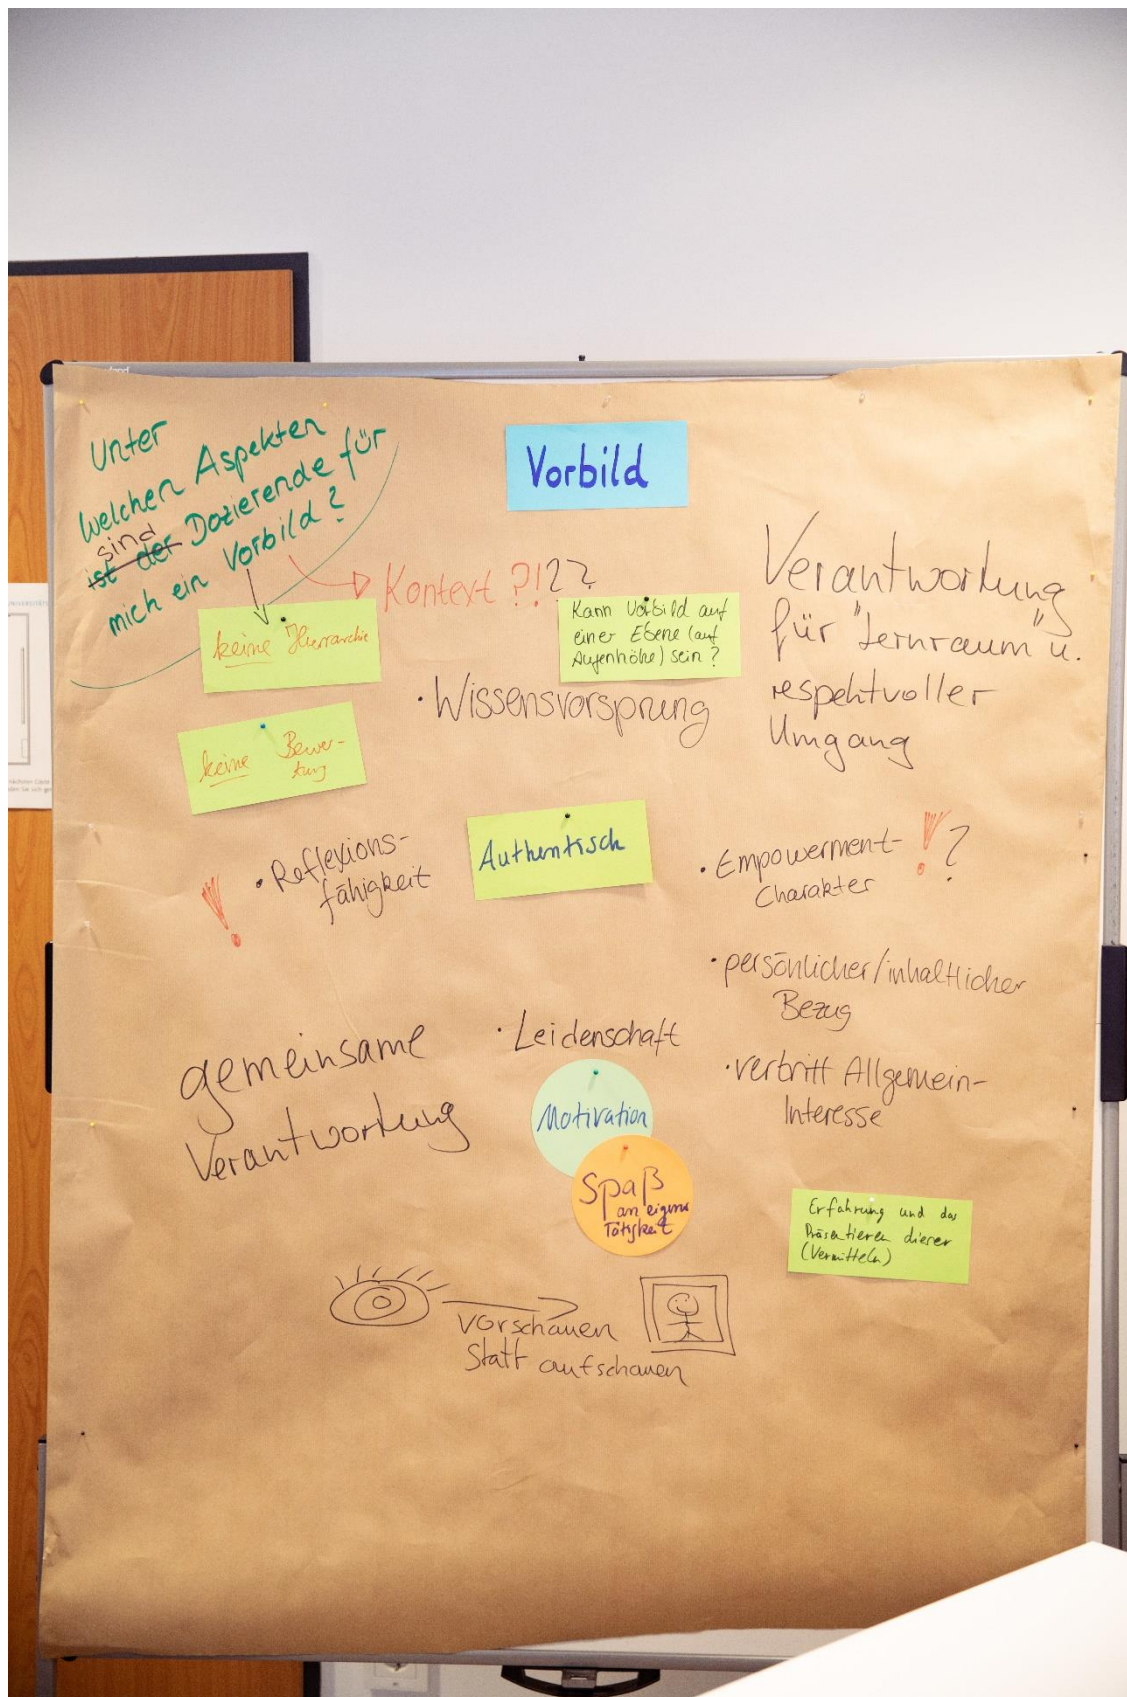 Unter
welchen Aspekten
sind
ist der Dozierende für
mich ein Vorbild?
Vorbild
Kontext ?!??
keine Hierrarchie
keine Bewer-
tung
Kann Vorbild auf
einer Ebene (auf
Augenhöhe) sein?
Verantwortung
für "Lernraum" u.
respektvoller
Umgang
· Wissensvorsprung
! · Reflexions-
fähigkeit
Authentisch
· Empowerment- !?
Charakter
· persönlicher/inhaltlicher
Bezug
· vertritt Allgemein-
Interesse
gemeinsame
Verantwortung
· Leidenschaft
Motivation
Spaß
an eigener
Tätigkeit
Erfahrung und das
Präsentieren dieser
(Vermitteln)
vorschauen
statt aufschauen